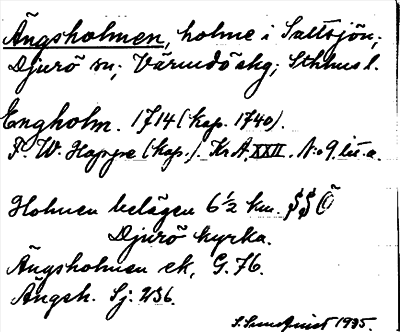 Ängsholmen, holme i Saltsjön;
Djurö sn; Värmdö skg; Sthlms l.
Engholm. 1714 (kop. 1740).
P. W. Happe (kop.). Kr. A. XXII. No 9 lit. a.
Holmen belägen 6½ km. SSÖ
Djurö kyrka.
Ängsholmen ek, G. 76.
Ängsh. Sj. 236.
S. Sundqvist 1935.